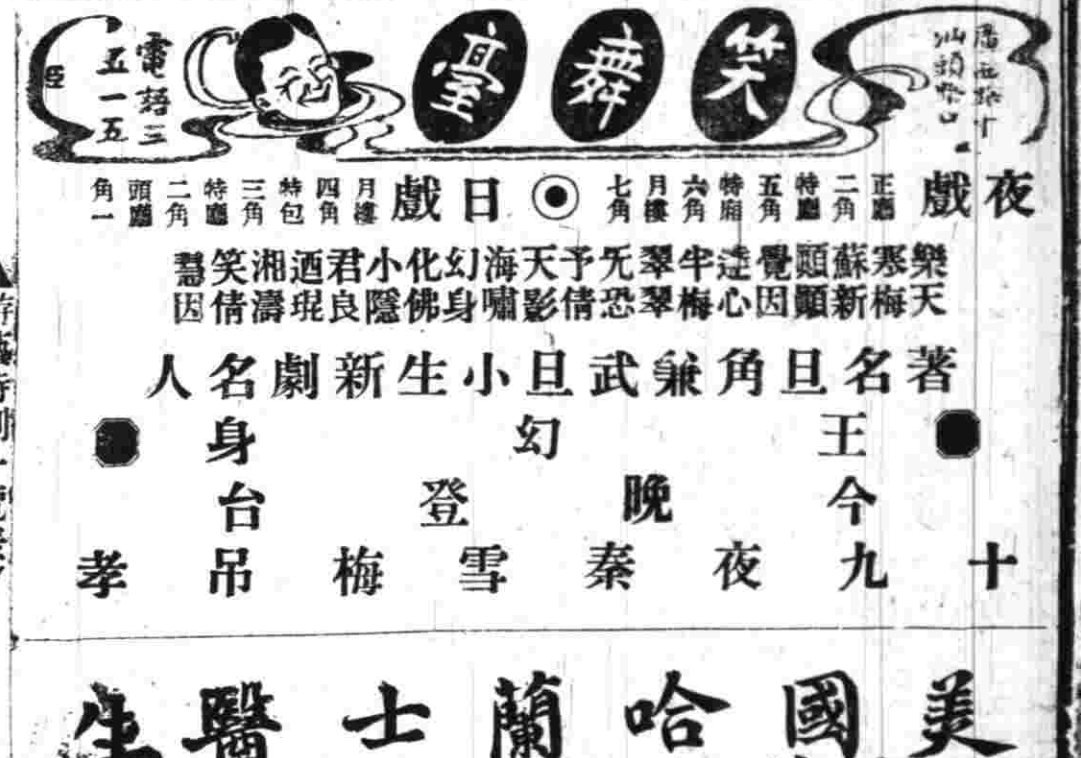 笑舞臺
汕頭路口
電話三
五一五
夜戲
正廳二角
特廳五角
特廂六角
月樓七角
日戲
月樓四角
特包三角
特廳二角
頭廳一角
樂天
寒梅
蘇新
顗顗
覺因
達心
半梅
翠翠
无恐
予倩
天影
海嘯
幻身
化佛
小隱
君良
迺琨
湘濤
笑倩
慧因
著名旦角兼武旦小生新劇名人
王幻身
今晚登台
十九夜秦雪梅吊孝
美國哈蘭士醫生